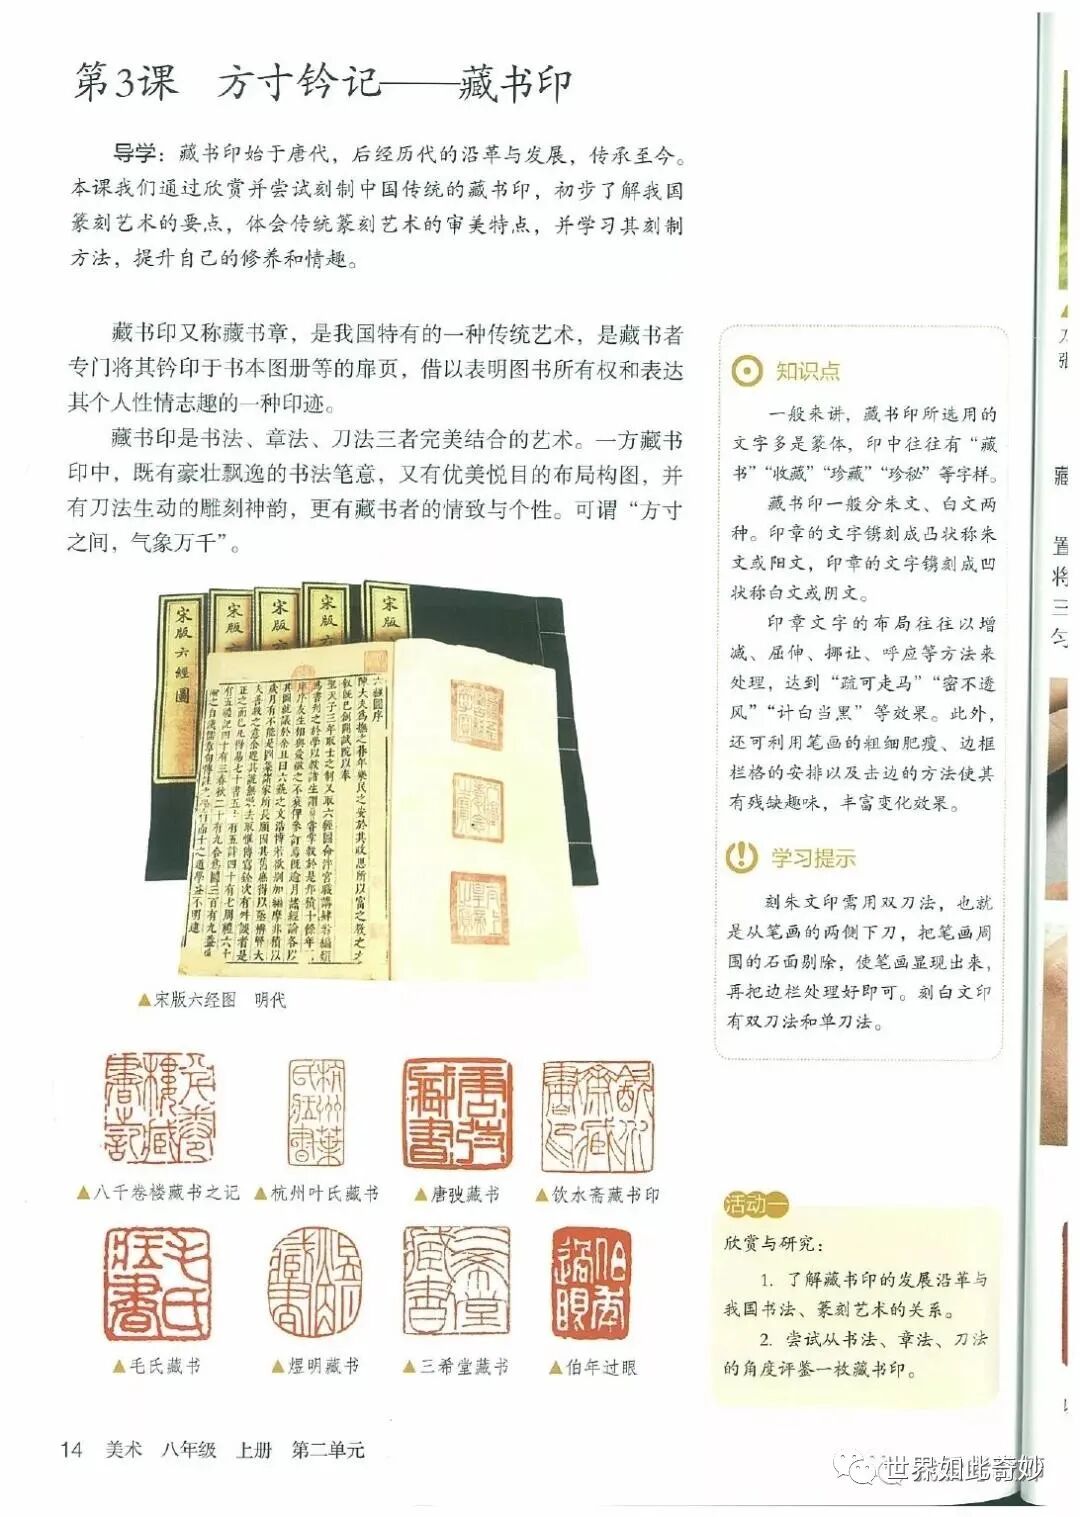 第3课 方寸钤记——藏书印
导学：藏书印始于唐代，后经历代的沿革与发展，传承至今。
本课我们通过欣赏并尝试刻制中国传统的藏书印，初步了解我国
篆刻艺术的要点，体会传统篆刻艺术的审美特点，并学习其刻制
方法，提升自己的修养和情趣。
藏书印又称藏书章，是我国特有的一种传统艺术，是藏书者
专门将其钤印于书本图册等的扉页，借以表明图书所有权和表达
其个人性情志趣的一种印迹。
藏书印是书法、章法、刀法三者完美结合的艺术。一方藏书
印中，既有豪壮飘逸的书法笔意，又有优美悦目的布局构图，并
有刀法生动的雕刻神韵，更有藏书者的情致与个性。可谓“方寸
之间，气象万千”。
宋版六經圖
宋版
宋版
宋版
宋版
六經圖序
▲宋版六经图 明代
▲八千卷楼藏书之记 ▲杭州叶氏藏书 ▲唐弢藏书 ▲饮水斋藏书印
▲毛氏藏书 ▲煜明藏书 ▲三希堂藏书 ▲伯年过眼
知识点
一般来讲，藏书印所选用的
文字多是篆体，印中往往有“藏
书”“收藏”“珍藏”“珍秘”等字样。
藏书印一般分朱文、白文两
种。印章的文字镌刻成凸状称朱
文或阳文，印章的文字镌刻成凹
状称白文或阴文。
印章文字的布局往往以增
减、屈伸、挪让、呼应等方法来
处理，达到“疏可走马”“密不透
风”“计白当黑”等效果。此外，
还可利用笔画的粗细肥瘦、边框
栏格的安排以及击边的方法使其
有残缺趣味，丰富变化效果。
学习提示
刻朱文印需用双刀法，也就
是从笔画的两侧下刀，把笔画周
围的石面剔除，使笔画显现出来，
再把边栏处理好即可。刻白文印
有双刀法和单刀法。
活动一
欣赏与研究：
1. 了解藏书印的发展沿革与
我国书法、篆刻艺术的关系。
2. 尝试从书法、章法、刀法
的角度评鉴一枚藏书印。
14 美术 八年级 上册 第二单元
世界如此奇妙
置
将
三
匀